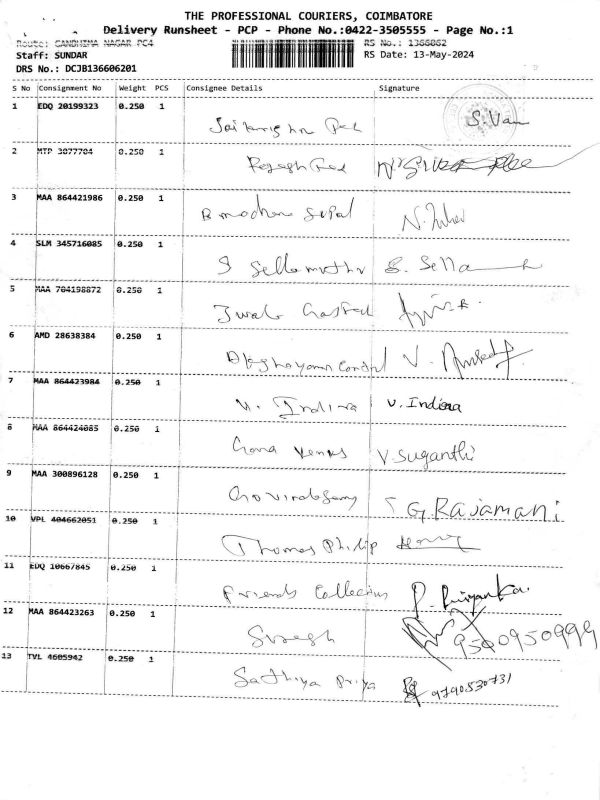 THE PROFESSIONAL COURIERS, COIMBATORE
Delivery Runsheet - PCP - Phone No.:0422-3505555 - Page No.:1
Route: GANDHIMA NAGAR PC4 RS No.: 1366062
Staff: SUNDAR RS Date: 13-May-2024
DRS No.: DCJB136606201
S No Consignment No Weight PCS Consignee Details Signature
1 EDQ 20199323 0.250 1 S.Van
2 MTP 3077704 0.250 1
3 MAA 864421986 0.250 1
4 SLM 345716085 0.250 1 S Sellamuthu S. Sella
5 MAA 704198872 0.250 1
6 AMD 28638384 0.250 1 V.
7 MAA 864423984 0.250 1 V. Indira V. Indiraa
8 MAA 864424085 0.250 1 V. Suganthi
9 MAA 300896128 0.250 1 Govindasamy G. Rajamani
10 VPL 404662051 0.250 1 Thomas Philip
11 EDQ 10667845 0.250 1 Friends Collections P. Priyanka.
12 MAA 864423263 0.250 1 Suresh 9500950999
13 TVL 4605942 0.250 1 Sathiya Priya 9790530731